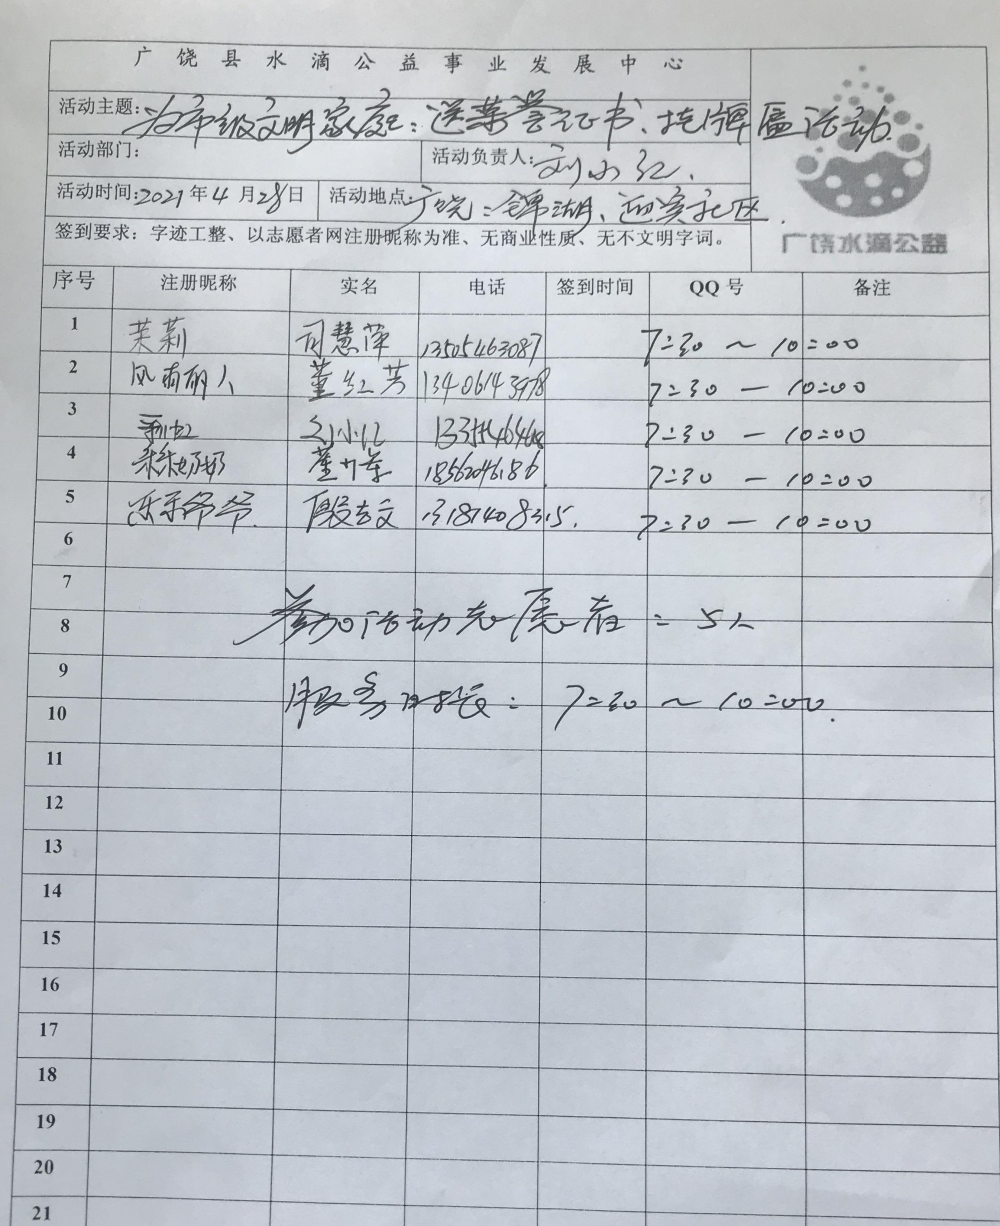 广饶县水滴公益事业发展中心
活动主题:为市级文明家庭:送荣誉证书、挂牌匾活动.
活动部门: 活动负责人:刘小红.
活动时间:2021年4月28日 活动地点:广饶:锦湖、迎宾社区.
签到要求:字迹工整、以志愿者网注册昵称为准、无商业性质、无不文明字词。
广饶水滴公益
序号 注册昵称 实名 电话 签到时间 QQ号 备注
1 茉莉 司慧萍 13505463087 7:30~10:00
2 风雨丽人 董红芳 13406143978 7:30—10:00
3 刘小红 7:30—10:00
4 奶奶 董 18562046186. 7:30—10:00
5 乐乐爷爷. 殷志文 13181408315. 7:30—10:00
6
7
参加活动志愿者:5人
8
9
服务时长:7:30~10:00.
10
11
12
13
14
15
16
17
18
19
20
21